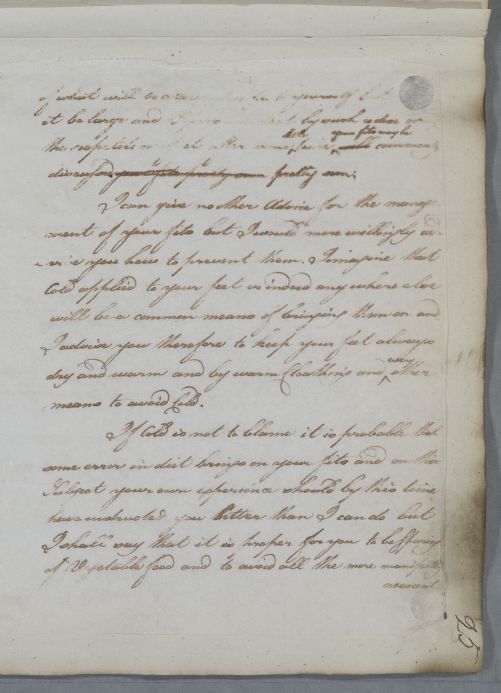 of what will to yourself
it be large and by such a dose or
the repetition of it after some hours your fits may be commonly
discussed your fits pretty soon pretty soon.
I can give no other Advice for the manage
ment of your fits but I would more willingly ad
vise you how to prevent them. I imagine that
Cold applied to your feet or indeed any where else
will be a common means of bringing them on and
I advise you therefore to keep your feet always
dry and warm and by warm Cloathing and every other
means to avoid Cold.
If Cold is not to blame it is probable that
some error in diet brings on your fits and on this
Subject your own experience should by this time
have instructed you better than I can do but
I shall say that it is proper for you to be sparing
of Vegetable food and to avoid all the more manifestly
acescent
25